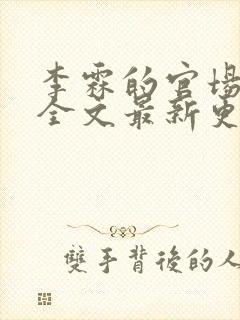 李霖的官場
全文最新更
雙手背後的人